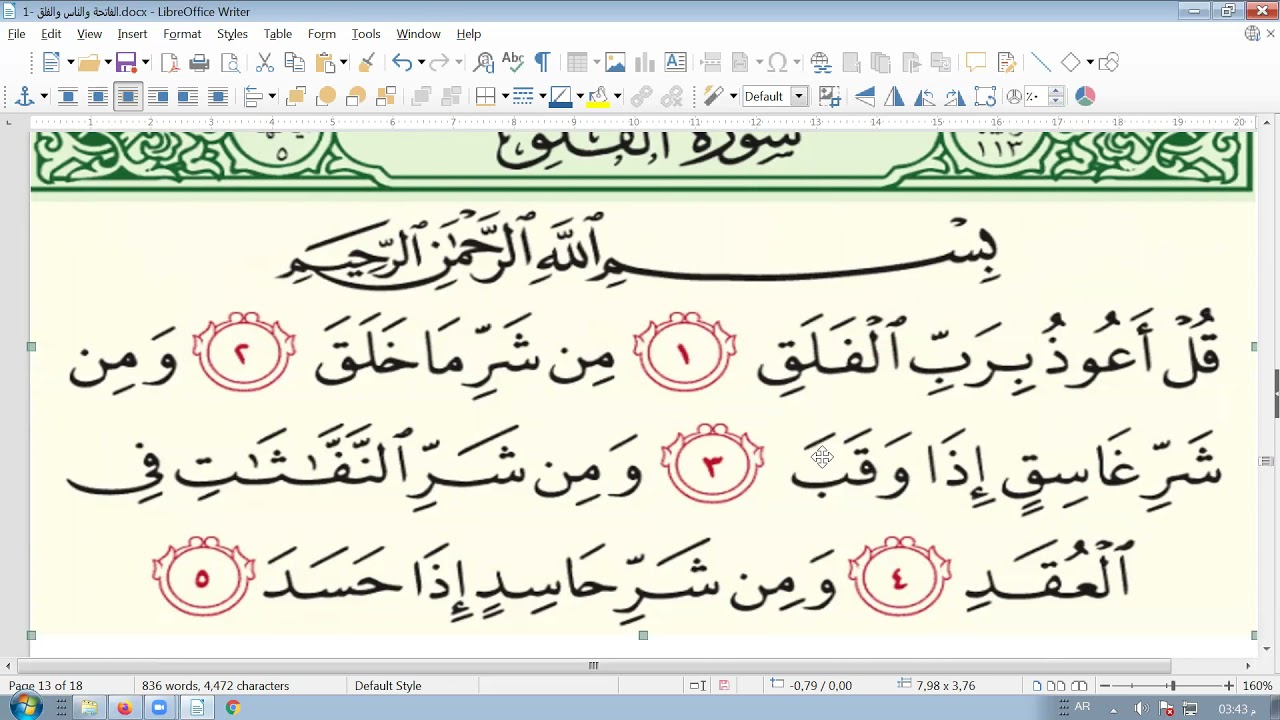 1- الفاتحة والناس والفلق.docx - LibreOffice Writer
File Edit View Insert Format Styles Table Form Tools Window Help
Default
1 2 3 4 5 6 7 8 9 10 11 12 13 14 15 16 17 18 19 20
٥ سورة الفلق ١١٣
بِسْمِ ٱللَّهِ ٱلرَّحْمَٰنِ ٱلرَّحِيمِ
قُلْ أَعُوذُ بِرَبِّ ٱلْفَلَقِ ١ مِن شَرِّ مَا خَلَقَ ٢ وَمِن
شَرِّ غَاسِقٍ إِذَا وَقَبَ ٣ وَمِن شَرِّ ٱلنَّفَّٰثَٰتِ فِى
ٱلْعُقَدِ ٤ وَمِن شَرِّ حَاسِدٍ إِذَا حَسَدَ ٥
Page 13 of 18 836 words, 4,472 characters Default Style -0,79 / 0,00 7,98 x 3,76 160%
AR 03:43 م